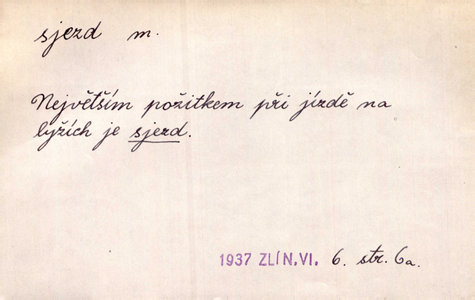 sjezd m.
Největším požitkem při jízdě na
lyžích je sjezd.
1937 ZLÍN.VI. 6. str. 6a.